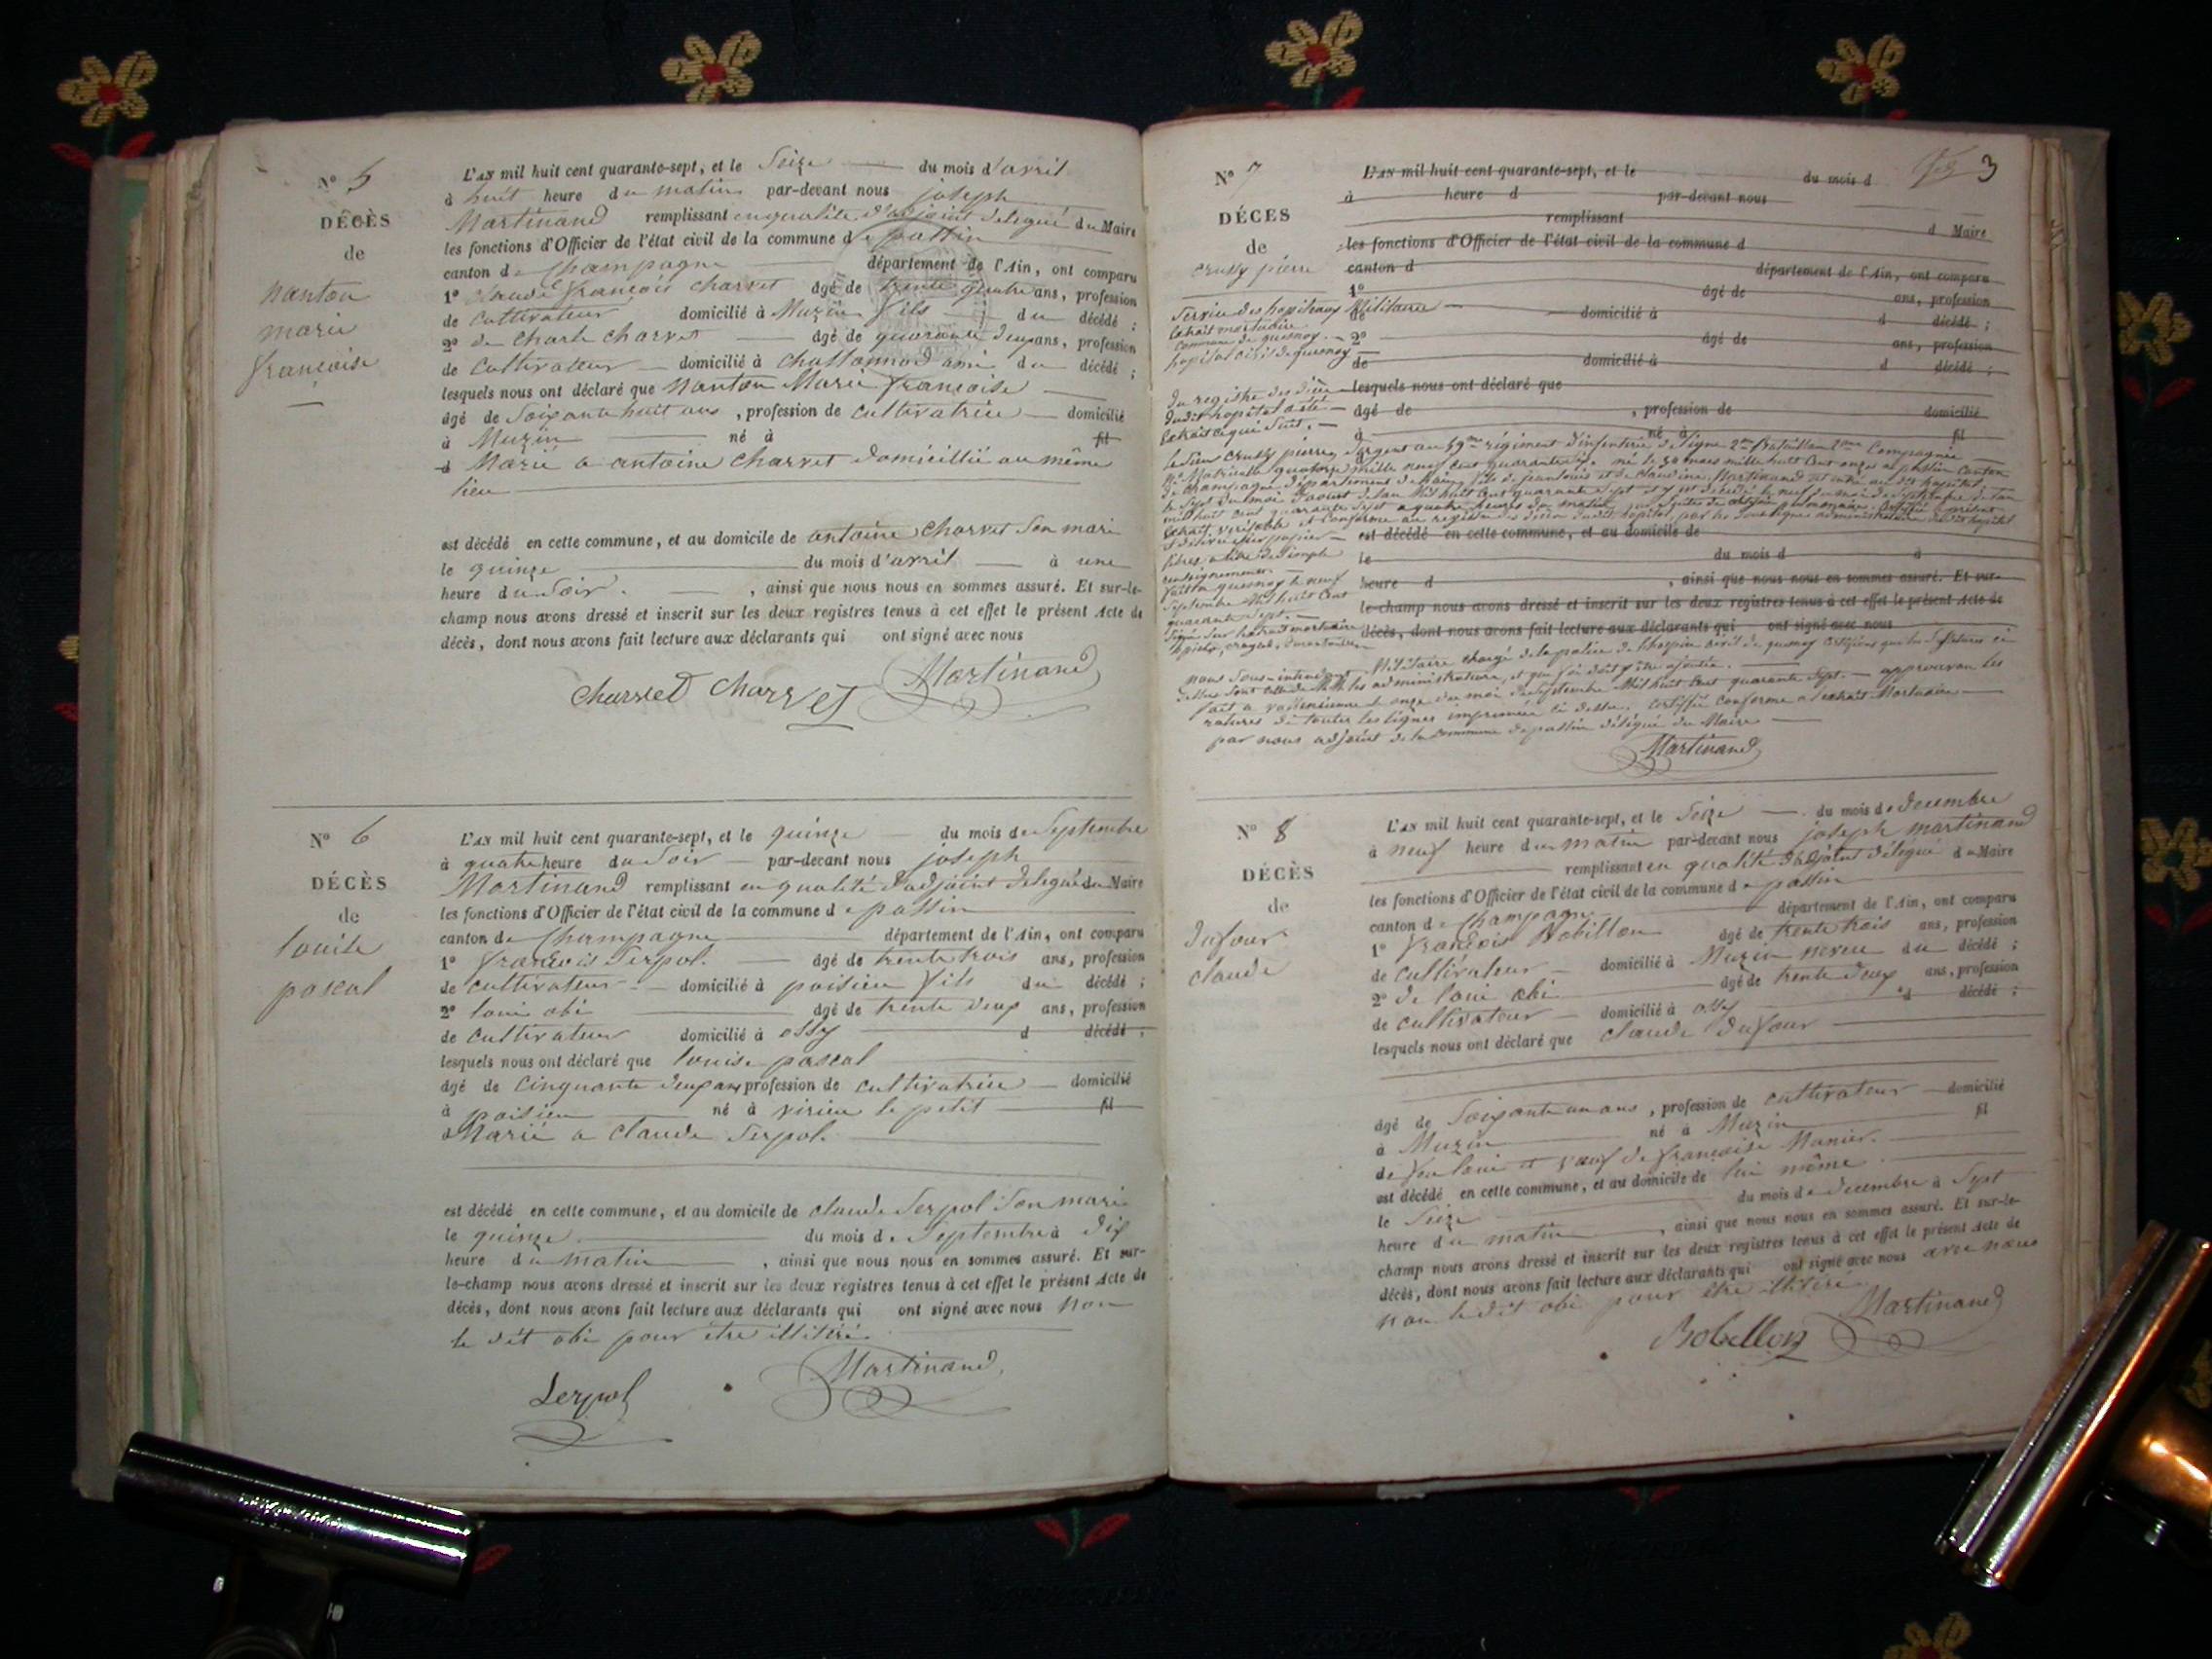 N° 5
DÉCÈS
de
nanton
marie
françoise
L'AN mil huit cent quarante-sept, et le Seize du mois d'avril
à huit heure du matin par-devant nous joseph
Martinand remplissant en qualité d'adjoint delegué du Maire
les fonctions d'Officier de l'état civil de la commune de passin
canton de Champagne département de l'Ain, ont comparu
1° claude françois charvet âgé de trente quatre ans, profession
de cultivateur domicilié à Muzin fils du décédé ;
2° de charle charvet âgé de quarante deux ans, profession
de cultivateur domicilié à chattonnod ami du décédé ;
lesquels nous ont déclaré que Nanton Marie françoise
âgé de Soixante huit ans, profession de cultivatrice domicilié
à Muzin né à fil
d Marié a antoine charvet domicillié au même
lieu
est décédé en cette commune, et au domicile de antoine charvet Son mari
le quinze du mois d'avril à une
heure du Soir, ainsi que nous nous en sommes assuré. Et sur-le-
champ nous avons dressé et inscrit sur les deux registres tenus à cet effet le présent Acte de
décès, dont nous avons fait lecture aux déclarants qui ont signé avec nous
charvet charvet Martinand
N° 6
DÉCÈS
de
louise
pascal
L'AN mil huit cent quarante-sept, et le quinze du mois de Septembre
à quatre heure du Soir par-devant nous joseph
Martinand remplissant en qualité d'adjoint delegué du Maire
les fonctions d'Officier de l'état civil de la commune de passin
canton de Champagne département de l'Ain, ont comparu
1° françois Serpol. âgé de trente trois ans, profession
de cultivateur domicilié à poisieu fils du décédé ;
2° loui obi âgé de trente deux ans, profession
de cultivateur domicilié à ossy d décédé ;
lesquels nous ont déclaré que louise pascal
âgé de cinquante deux ans profession de cultivatrice domicilié
à poisieu né à virieu le petit fil
d Marié a claude Serpol.
est décédé en cette commune, et au domicile de claude Serpol Son mari
le quinze du mois de Septembre à dix
heure du matin, ainsi que nous nous en sommes assuré. Et sur-
le-champ nous avons dressé et inscrit sur les deux registres tenus à cet effet le présent Acte de
décès, dont nous avons fait lecture aux déclarants qui ont signé avec nous non
le dit obi pour être illitéré.
Serpol Martinand
3
N° 7
DÉCES
de
crussy pierre
L'AN mil huit cent quarante-sept, et le du mois d
à heure d par-devant nous
remplissant d Maire
les fonctions d'Officier de l'état civil de la commune d
canton d département de l'Ain, ont comparu
1° âgé de ans, profession
Service des hopitaux Militaire
de domicilié à d décédé ;
Extrait mortuaire
commune de quesnoy.
2° âgé de ans, profession
hopital civil de quesnoy
de domicilié à d décédé ;
du registre des décès
lesquels nous ont déclaré que
dudit hopital a été
âgé de , profession de domicilié
Extrait ce qui Suit.
à né à fil
le Sieur crussy pierre, Sergent au 59me régiment d'infenterie de ligne 2me Bataillon 2me Compagnie
N° Matricule quatorze mille neuf cent quarante né le 30 mars mille huit cent onze a passin canton
de champagne département de l'ain, fils de jean louis et de claudine Martinand est entré au dit hopital
le Sept du moi d'aoust de l'an Mil huit cent quarante Sept et y est décédé le neuf du moi de Septembre de l'an
mil huit cent quarante Sept a quatre heures du matin
Extrait véritable et conforme au registre des décès dudit hopital
est décédé en cette commune, et au domicile de
le du mois d à
heure d , ainsi que nous nous en sommes assuré. Et sur-
Septembre Mil huit cent
le-champ nous avons dressé et inscrit sur les deux registres tenus à cet effet le présent Acte de
quarante Sept.
décès, dont nous avons fait lecture aux déclarants qui ont signé avec nous
Signé Sur l'extrait mortuaire
nous Sous-intendant Militaire chargé de la police de l'hospice civil de quesnoy certifions que les Signatures ci
dessus Sont celles de MM. les administrateurs, et que foi doit y être ajoutée.
fait a valenciennes le onze du moi de Septembre Mil huit cent quarante Sept. approuvon les
ratures de toutes les lignes imprimée ci dessu. certiffié conforme a l'extrait Mortuaire
par nous adjoint de la commune de passin délégué du Maire
Martinand
N° 8
DÉCÈS
de
dufour
claude
L'AN mil huit cent quarante-sept, et le Seize du mois de decembre
à neuf heure du matin par-devant nous joseph martinand
remplissant en qualité d'adjoint délégué du Maire
les fonctions d'Officier de l'état civil de la commune de passin
canton de Champagne département de l'Ain, ont comparu
1° françois Bobillon âgé de trente trois ans, profession
de cultivateur domicilié à Muzin neveu du décédé ;
2° de loui obi âgé de trente deux ans, profession
de cultivateur domicilié à ossy d décédé ;
lesquels nous ont déclaré que claude dufour
âgé de Soixante un ans, profession de cultivateur domicilié
à Muzin né à Muzin fil
de feu loui et veuf de françoise Monier.
est décédé en cette commune, et au domicile de lui même
le Seize du mois de decembre à Sept
heure du matin, ainsi que nous nous en sommes assuré. Et sur-le-
champ nous avons dressé et inscrit sur les deux registres tenus à cet effet le présent Acte de
décès, dont nous avons fait lecture aux déclarants qui ont signé avec nous avec nous
non le dit obi pour être illitéré
Bobillon Martinand